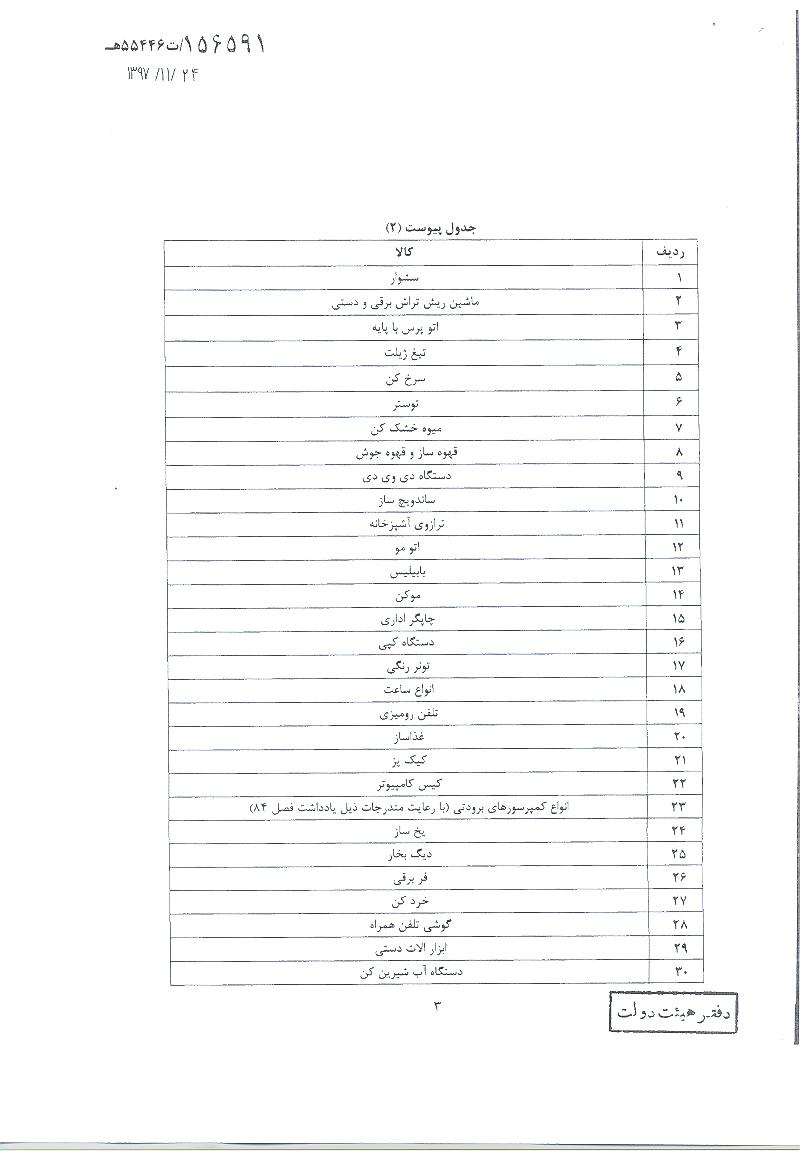 ۱۵۶۵۹۱/ت۵۵۴۴۶هـ
۱۳۹۷/۱۱/۲۴
جدول پیوست (۲)
ردیف کالا
۱ سشوار
۲ ماشین ریش تراش برقی و دستی
۳ اتو پرس با پایه
۴ تیغ ژیلت
۵ سرخ کن
۶ توستر
۷ میوه خشک کن
۸ قهوه ساز و قهوه جوش
۹ دستگاه دی وی دی
۱۰ ساندویچ ساز
۱۱ ترازوی آشپزخانه
۱۲ اتو مو
۱۳ بابیلیس
۱۴ موکن
۱۵ چاپگر اداری
۱۶ دستگاه کپی
۱۷ تونر رنگی
۱۸ انواع ساعت
۱۹ تلفن رومیزی
۲۰ غذاساز
۲۱ کیک پز
۲۲ کیس کامپیوتر
۲۳ انواع کمپرسورهای برودتی (با رعایت مندرجات ذیل یادداشت فصل ۸۴)
۲۴ یخ ساز
۲۵ دیگ بخار
۲۶ فر برقی
۲۷ خرد کن
۲۸ گوشی تلفن همراه
۲۹ ابزار الات دستی
۳۰ دستگاه آب شیرین کن
۳
دفتر هیئت دولت